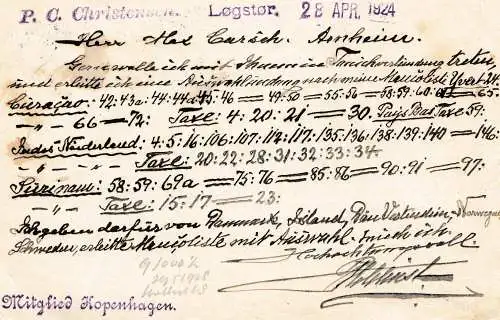 P. C. Christensen. Løgstør. 28 APR. 1924
Herr Alex Carsch. Arnheim.
Gerne wolle ich mit Ihnen in Tauschverbindung treten,
und erbitte ich eine Auswahlsendung nach meine Mancoliste Yvert 24.
Curaçao: 42·43a: 44·44a·45·46 = 49·50 = 55·56 = 58·59·60 65·
" - 66 = 72: Taxe: 4·20·21 = 30. Pays Bas Taxe 59:
Indes Néderland: 4·5·16·106·107·112·117·135·136·138·139·140 = 146:
" - " - Taxe: 20·22·28·31·32·33·34
Surinam: 58·59·69a = 75·76 = 85·86 = 90·91 = 97:
" - " - Taxe: 15·17 = 23:
Ich geben dafür von Danmark, Island, Dän Vestindien, Norwegen
Schweden, erbitte Mancoliste mit Auswahl.
Hochachtungsvoll.
Mitglied Kopenhagen.